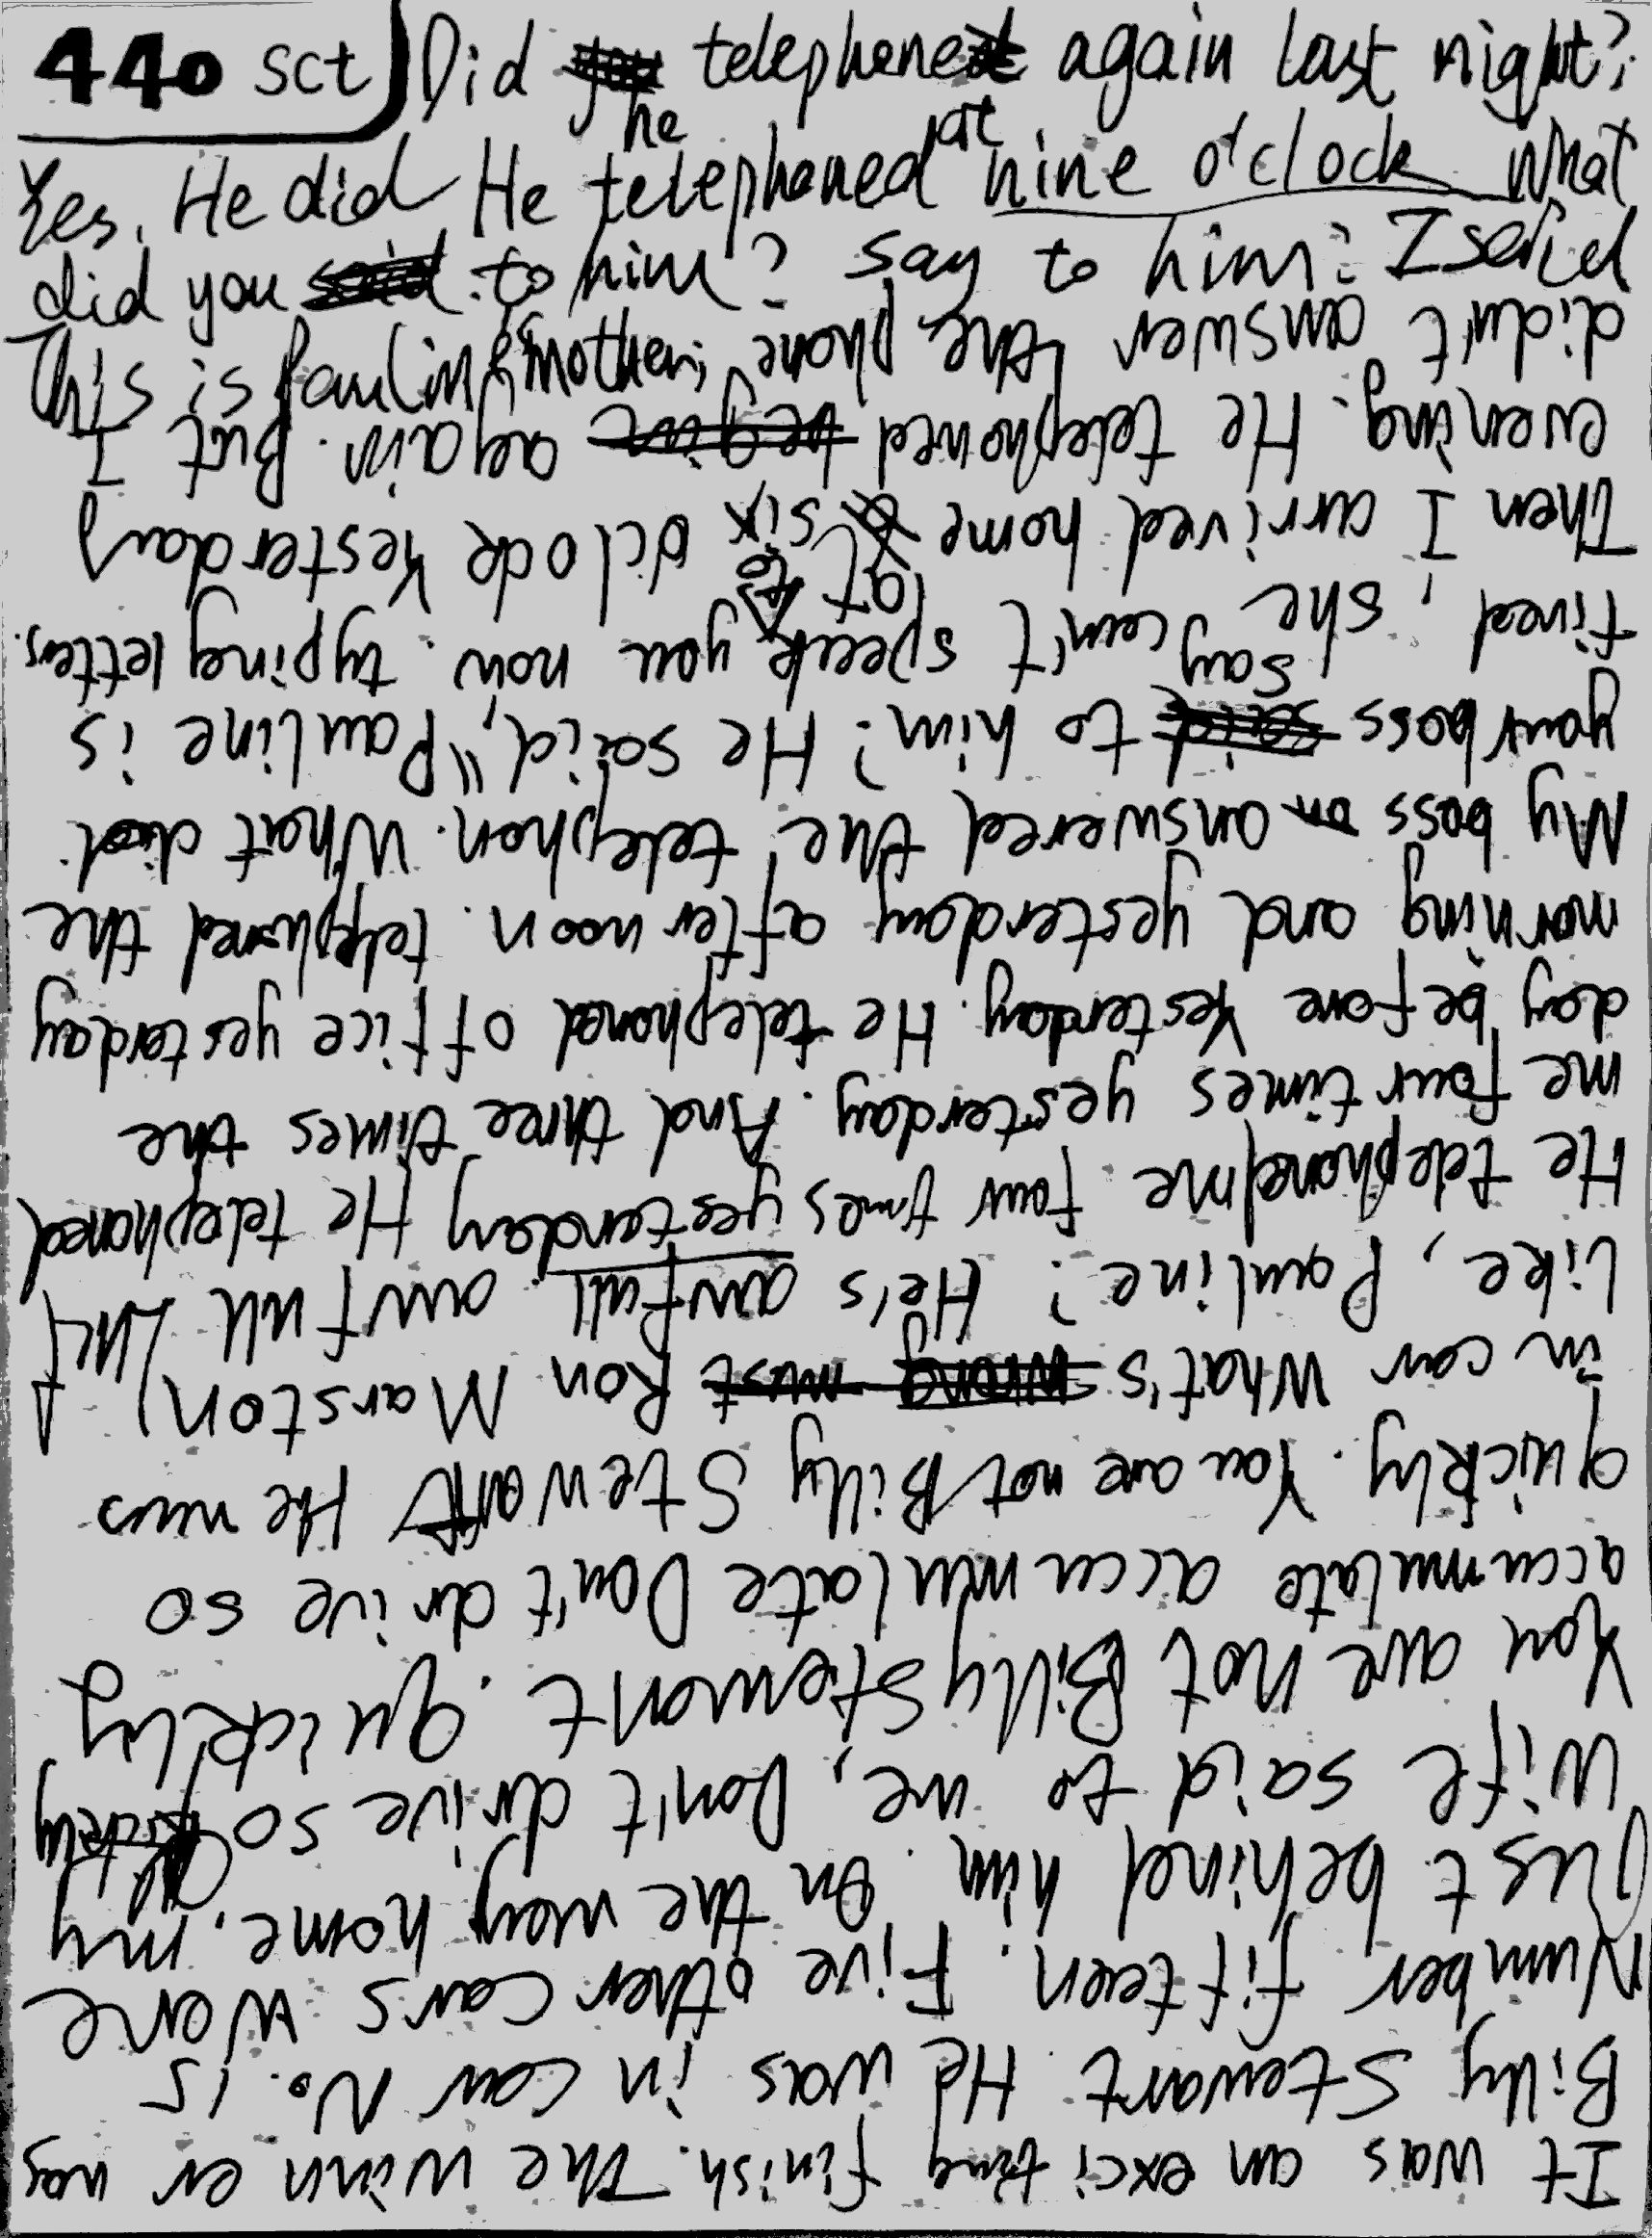 440 sct Did he telephone again last night?
Yes, He did He telephoned at nine o'clock What
did you to him? say to him? I said
This is Pauline's mother;
It was an exciting finish. The winn er was
Billy Stewart. He was in car No. 15
Number fifteen. Five other cars were
Just behind him. On the way home, my
Wife said to me, Don't drive so quickly
You are not Billy Stewart. quickly
accumulate accumulate Don't drive so
quickly. You are not Billy Stewart He was
in car What's Ron Marston
Like, Pauline? He's awfull awfull
He telephoned me four times yesterday He telephoned
me four times yesterday. And three times the
day before Yesterday. He telephoned office yesterday
morning and yesterday after noon. telephoned the
My boss answered the telephon. What did
your boss say to him? He said, "Pauline is
tired, she can't speak to you now. typing letters.
Then I arrived home at six o'clock Yesterday
evening. He telephoned again. But I
didn't answer the phone